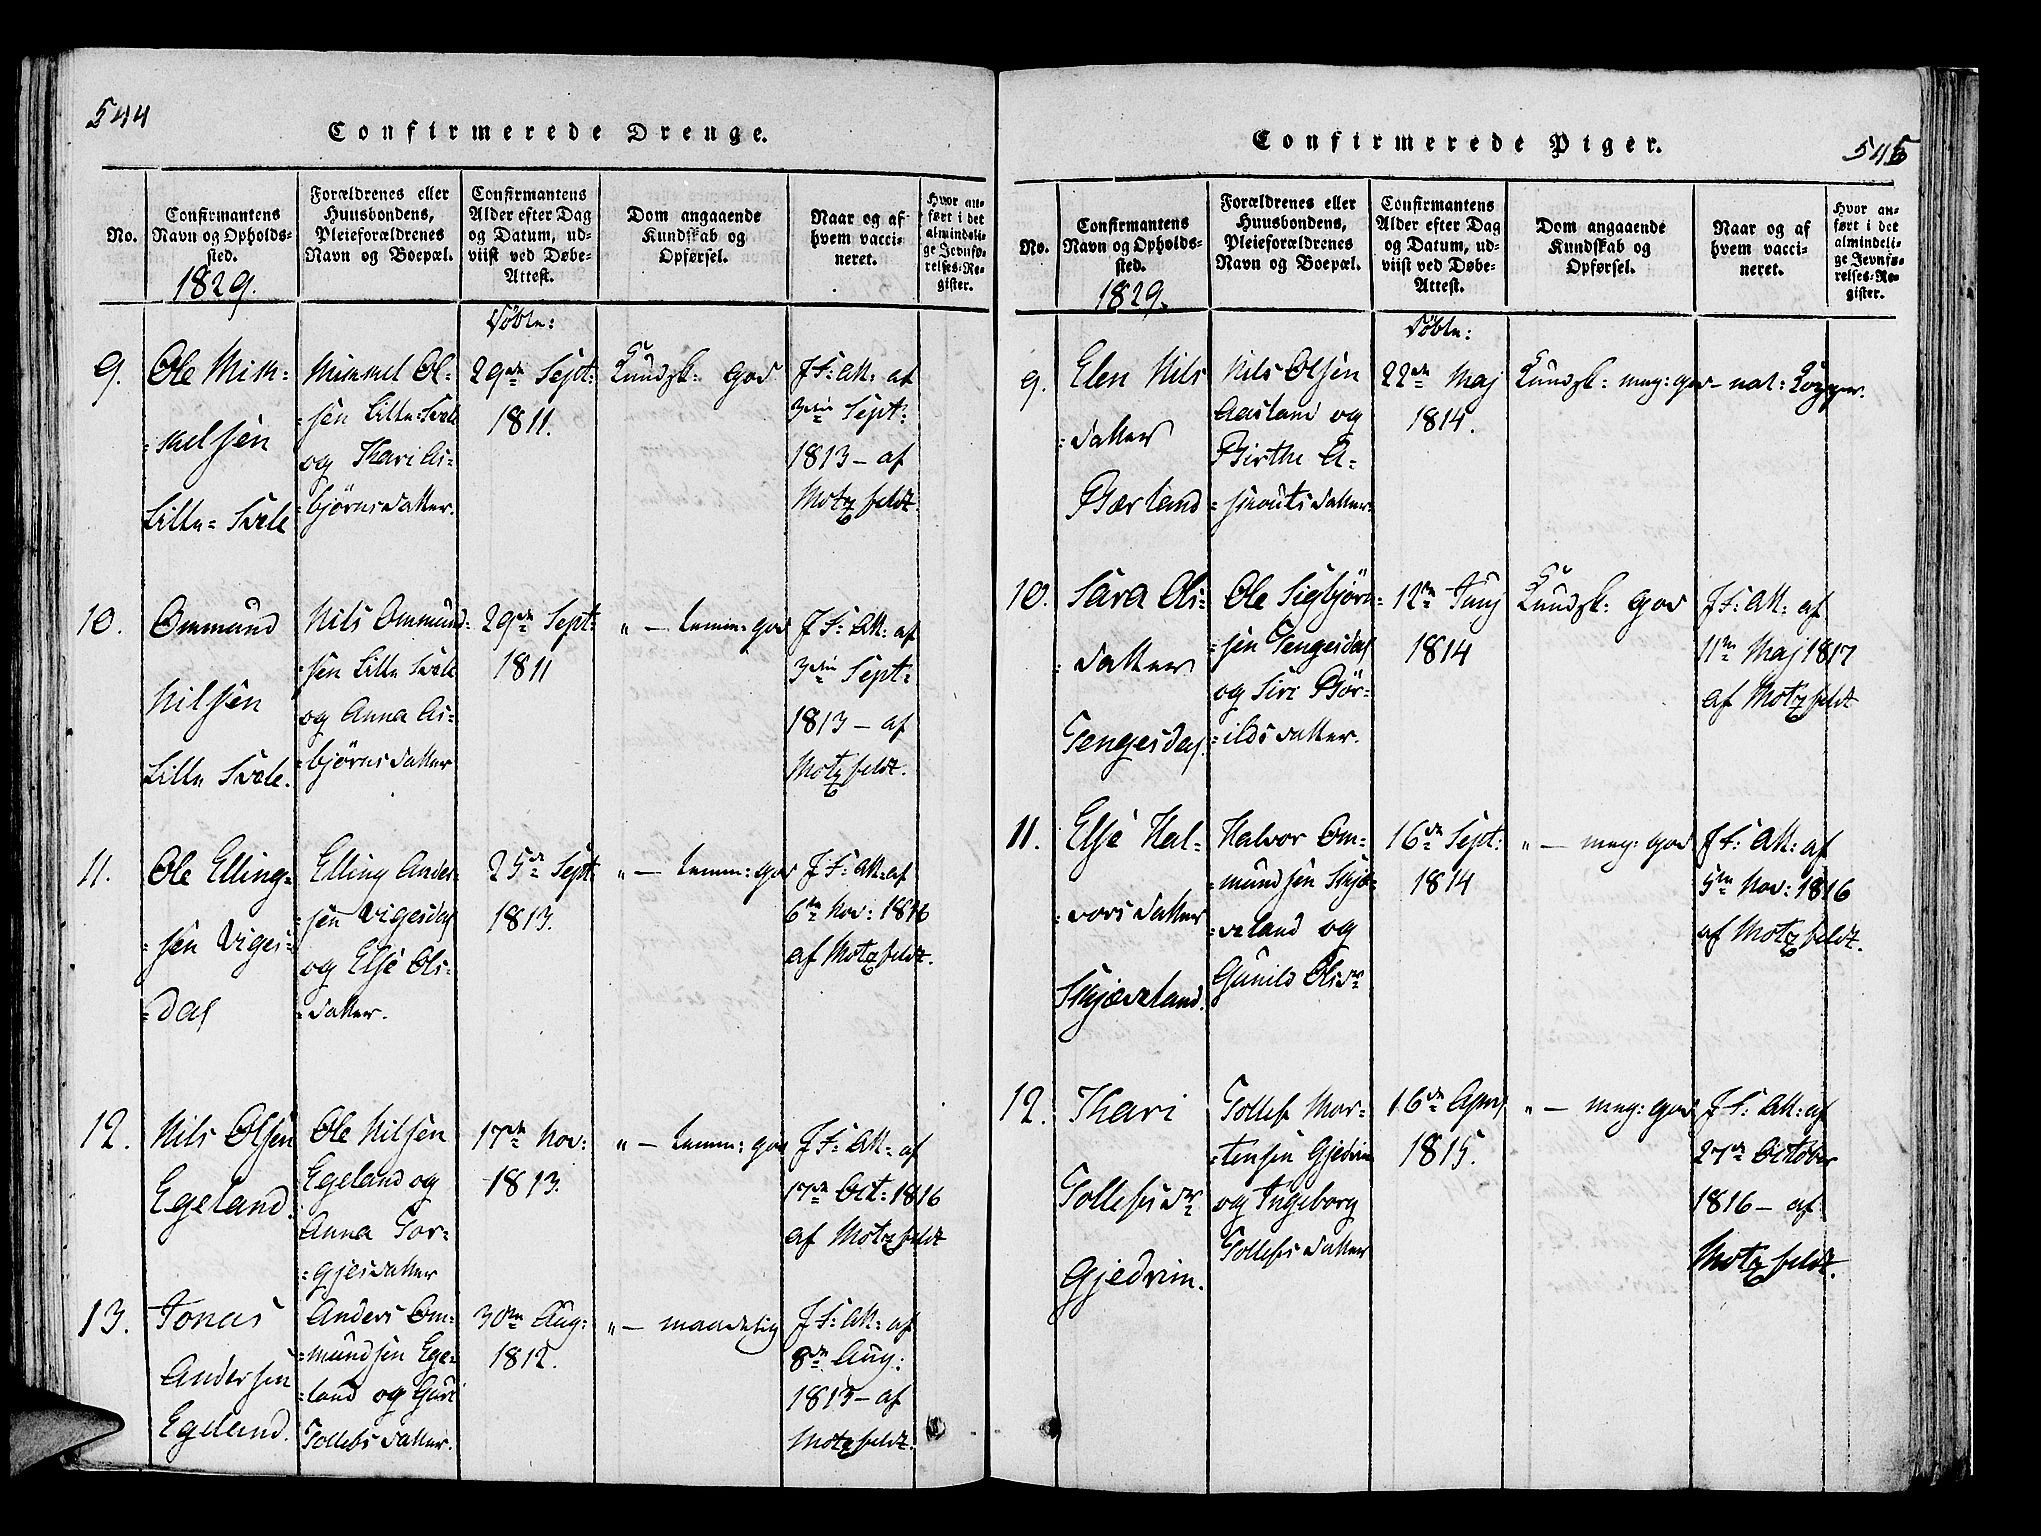 544
Confirmerede Drenge.
No.
Confirmantens
Navn og Opholds-
sted.
1829.
Forældrenes eller
Huusbondens,
Pleieforældrenes
Navn og Boepæl.
Confirmantens
Alder efter Dag
og Datum, ud-
viist ved Døbe-
Attest.
Dom angaaende
Kundskab og
Opførsel.
Naar og af
hvem vacci-
neret.
Hvor an-
ført i det
almindeli-
ge Jevnfø-
relses-Re-
gister.
9.
Ole Mim-
-melsen
Lille-Svele
Mimmel Ol-
-sen Lille-Svele
og Kari As-
-bjørnsdatter.
Døbte:
29de Sept:
1811.
Kundsk: god
J F: Att: af
3die Sept:
1813 - af
Motzfeldt
10.
Ommund
Nilsen
Lille Svele.
Nils Ommund-
-sen Lille Svele
og Anna As-
-bjørnsdatter
29de Sept:
1811
" - temm: god
J F: Att: af
3die Sept:
1813 - af
Motzfeldt.
11.
Ole Elling-
-sen Viges-
-dal
Elling Ander-
-sen Vigesdal
og Else Ols-
-datter.
25de Sept:
1813.
" - temm: god
J F: Att: af
6te Nov: 1816
af Motzfeldt.
12.
Nils Olsen
Egeland.
Ole Nilsen
Egeland og
Anna Tor-
-gjesdatter
17de Nov:
1813.
" - temm: god
J F: Att: af
17de Oct: 1816
af Motzfeldt
13.
Jonas
Andersen
Egeland.
Anders Om-
-mundsen Ege-
-land og Guri
Tollefsdatter.
30te Aug:
1812.
" - maadelig
J F: Att: af
8de Aug:
1813 - af
Motzfeldt.
545
Confirmerede Piger.
No.
Confirmantens
Navn og Opholds-
sted.
1829.
Forældrenes eller
Huusbondens,
Pleieforældrenes
Navn og Boepæl.
Confirmantens
Alder efter Dag
og Datum, ud-
viist ved Døbe-
Attest.
Dom angaaende
Kundskab og
Opførsel.
Naar og af
hvem vacci-
neret.
Hvor an-
ført i det
almindeli-
ge Jevnfø-
relses-Re-
gister.
9.
Elen Nils
-datter
Bærland
Nils Olsen
Aasland og
Birthe A-
-datter.
Døbte:
22de Maj
1814.
Kundsk: meg: god - nat: Kopper.
10.
Sara Ols-
-datter
Tengesdal.
Ole Sigbjørn-
-sen Tengesdal
og Siri Bør-
-ildsdatter.
12te Junj
1814
Kundsk: god
J F: Att: af
11te Maj 1817
af Motzfeldt
11.
Else Hal-
-vorsdatter
Skjæveland.
Halvor Om-
-mundsen Skjæ-
-veland og
Gunild Olsdr
16de Sept:
1814
" - meg: god
J F: Att: af
5te Nov: 1816
af Motzfeldt.
12.
Kari
Tollefsdr
Gjedrim.
Tollef Mor-
-tensen Gjedrim
og Ingeborg
Tollefsdatter
16de April
1815.
" - meg: god
J F: Att: af
27de October
1816 - af
Motzfeldt.